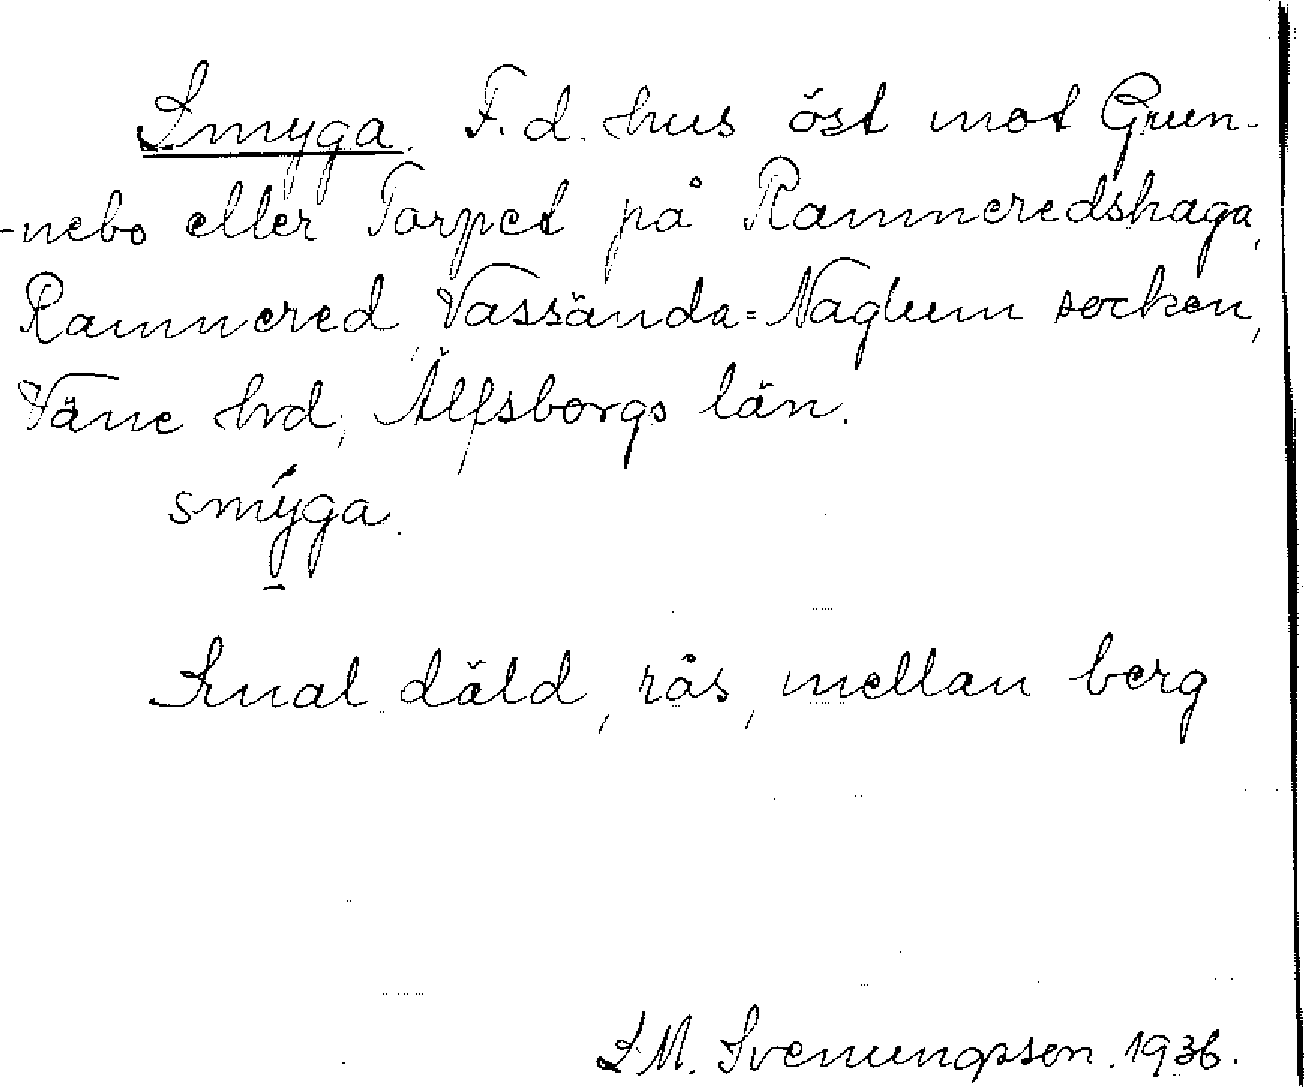 Smyga. F. d. hus öst mot Grun-
-nebo eller Torpet på Rannneredshaga,
Ramnered, Vassända=Naglum socken,
Väne hrd, Älfsborgs län.
smýga.
Smal däld, rås, mellan berg
S. M. Svenungsson. 1936.